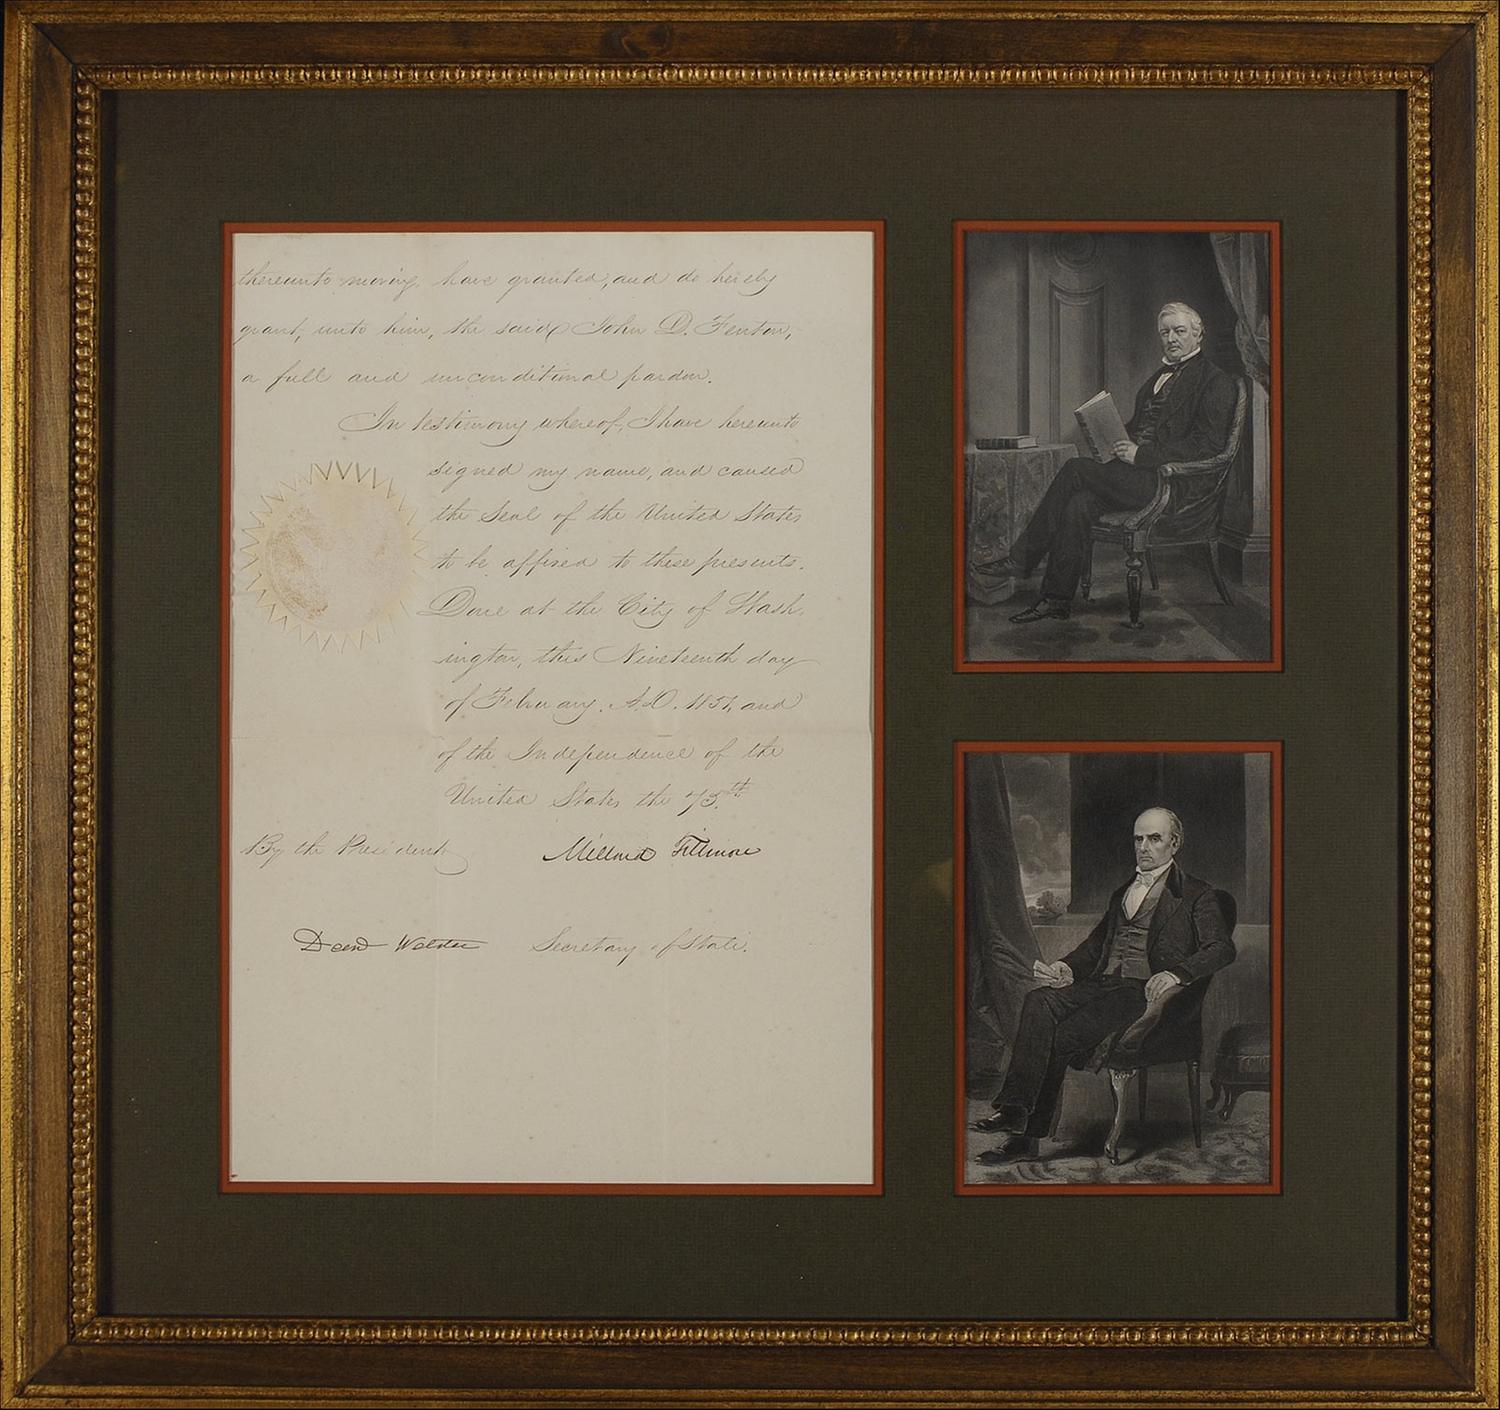 thereunto moving, have granted, and do hereby
grant, unto him, the said John D. Fenton,
a full and unconditional pardon.
In testimony whereof, I have hereunto
signed my name, and caused
the Seal of the United States
to be affixed to these presents.
Done at the City of Wash
ington, this Nineteenth day
of February, A.D. 1851, and
of the Independence of the
United States the 75.th
By the President
Millard Fillmore
Danl Webster Secretary of State.